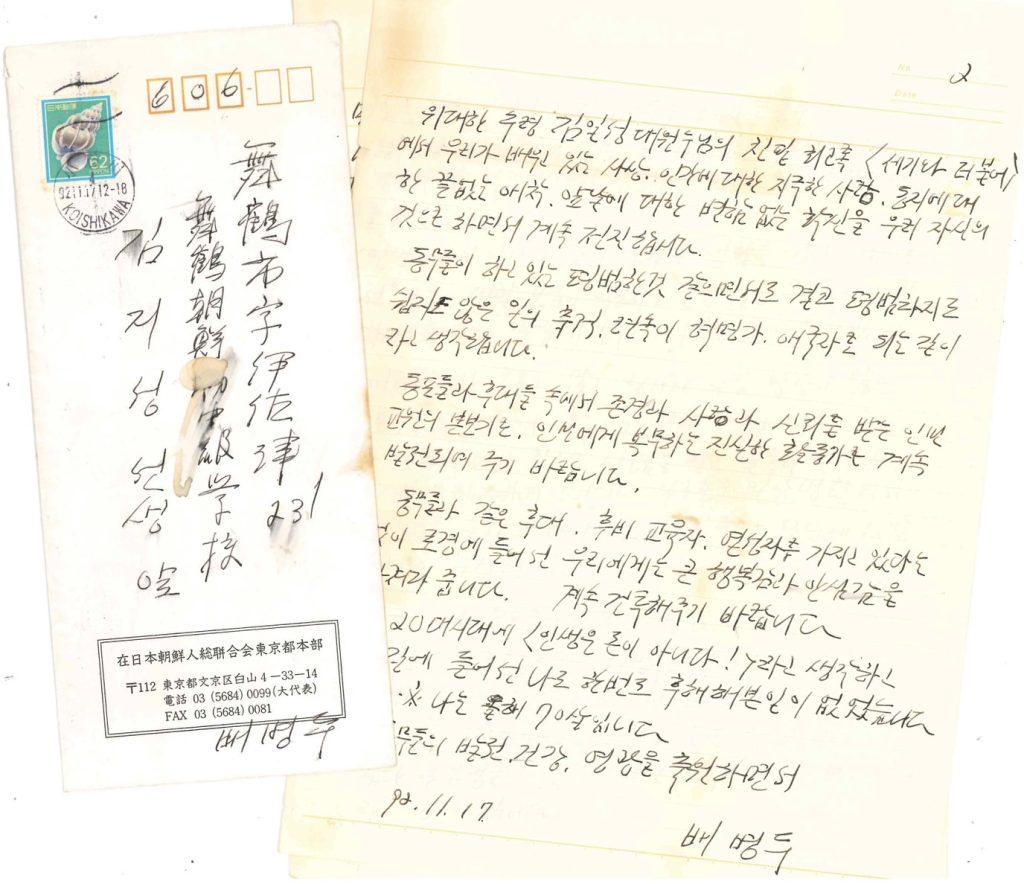 606
日本郵便
62
NIPPON
92.11.17.12-18
KOISHIKAWA
舞鶴市字伊佐津231
舞鶴朝鮮 級学校
김지성선생 앞
在日本朝鮮人総聯合会東京都本部
〒112 東京都文京区白山4-33-14
電話 03 (5684) 0099(大代表)
FAX 03 (5684) 0081
배병두
No. 2
Date
위대한 수령 김일성대원수님의 친필 회고록 〈세기와 더불어〉
에서 우리가 배우고 있는 사상, 인민에 대한 지극한 사랑, 동지에 대
한 끝없는 애착, 앞날에 대한 변함없는 확신을 우리 자신의
것으로 하면서 계속 전진합시다.
동무들이 하고 있는 평범한것 같으면서도 결코 평범하지도
쉽지도 않은 일의 축적, 련속이 혁명가, 애국자로 되는 길이
라고 생각됩니다.
동포들과 후대들 속에서 존경과 사랑과 신뢰를 받는 인민
교원의 본보기로, 인민에게 복무하는 진실한 일군으로 계속
발전되여 주기 바랍니다.
동무들과 같은 후대, 후비 교육자, 열성자를 가지고 있다는
것이 로경에 들어선 우리에게는 큰 행복감과 안심감을
줍니다. 계속 건투해주기 바랍니다
20대시대에 〈인생은 돈이 아니다!〉라고 생각하고
길에 들어선 나도 한번도 후회해본 일이 없었습니다
※ 나는 올해 70살입니다
동무들의 발전, 건강, 영광을 축원하면서
92.11.17.
배병두